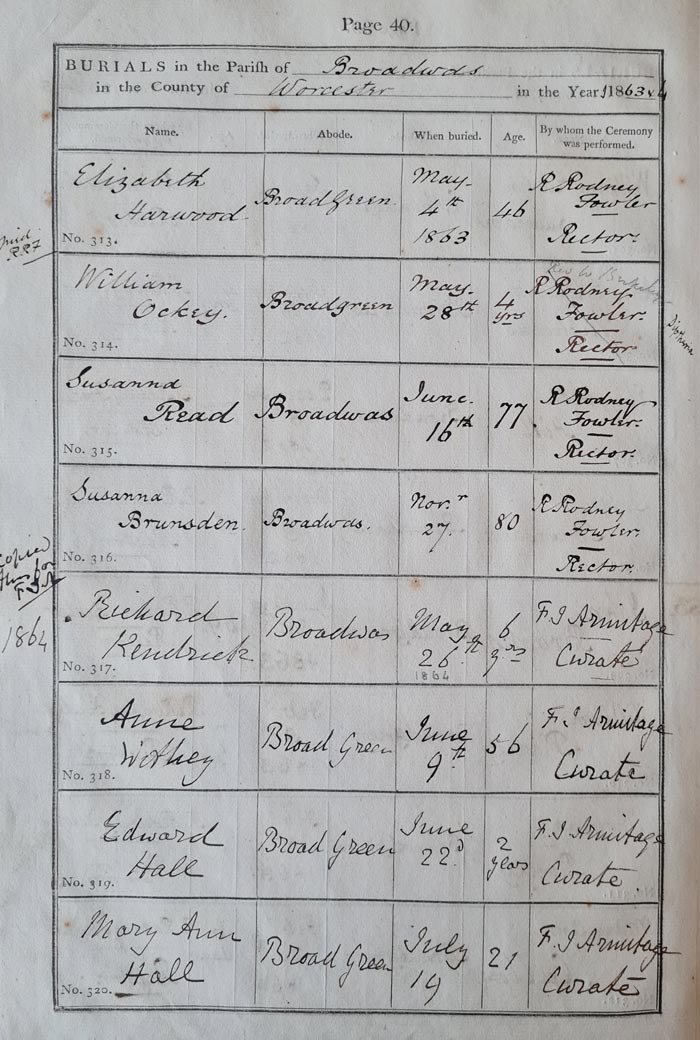 Page 40.
BURIALS in the Parish of Broadwas
in the County of Worcester in the Year 1863 & 4
Name. Abode. When buried. Age. By whom the Ceremony was performed.
Elizabeth
Harwood
No. 313.
Broadgreen
May
4th
1863
46
R Rodney
Fowler
Rector.
William
Ockey.
No. 314.
Broadgreen
May.
28th
4
yrs
R Rodney
Fowler.
Rector
Susanna
Read
No. 315.
Broadwas
June.
16th
77.
R Rodney
Fowler.
Rector.
Susanna
Brunsden.
No. 316.
Broadwas.
Nov.r
27.
80
R Rodney
Fowler.
Rector.
1864
Richard
Kendrick
No. 317.
Broadwas
May
26.th
1864
6
yrs
F. J Armitage
Curate
Anne
Withey
No. 318.
Broad Green
June
9th
56
F. J Armitage
Curate
Edward
Hall
No. 319.
Broad Green
June
22d
2
years
F. J Armitage
Curate
Mary Ann
Hall
No. 320.
Broad Green
July
19
21
F. J Armitage
Curate